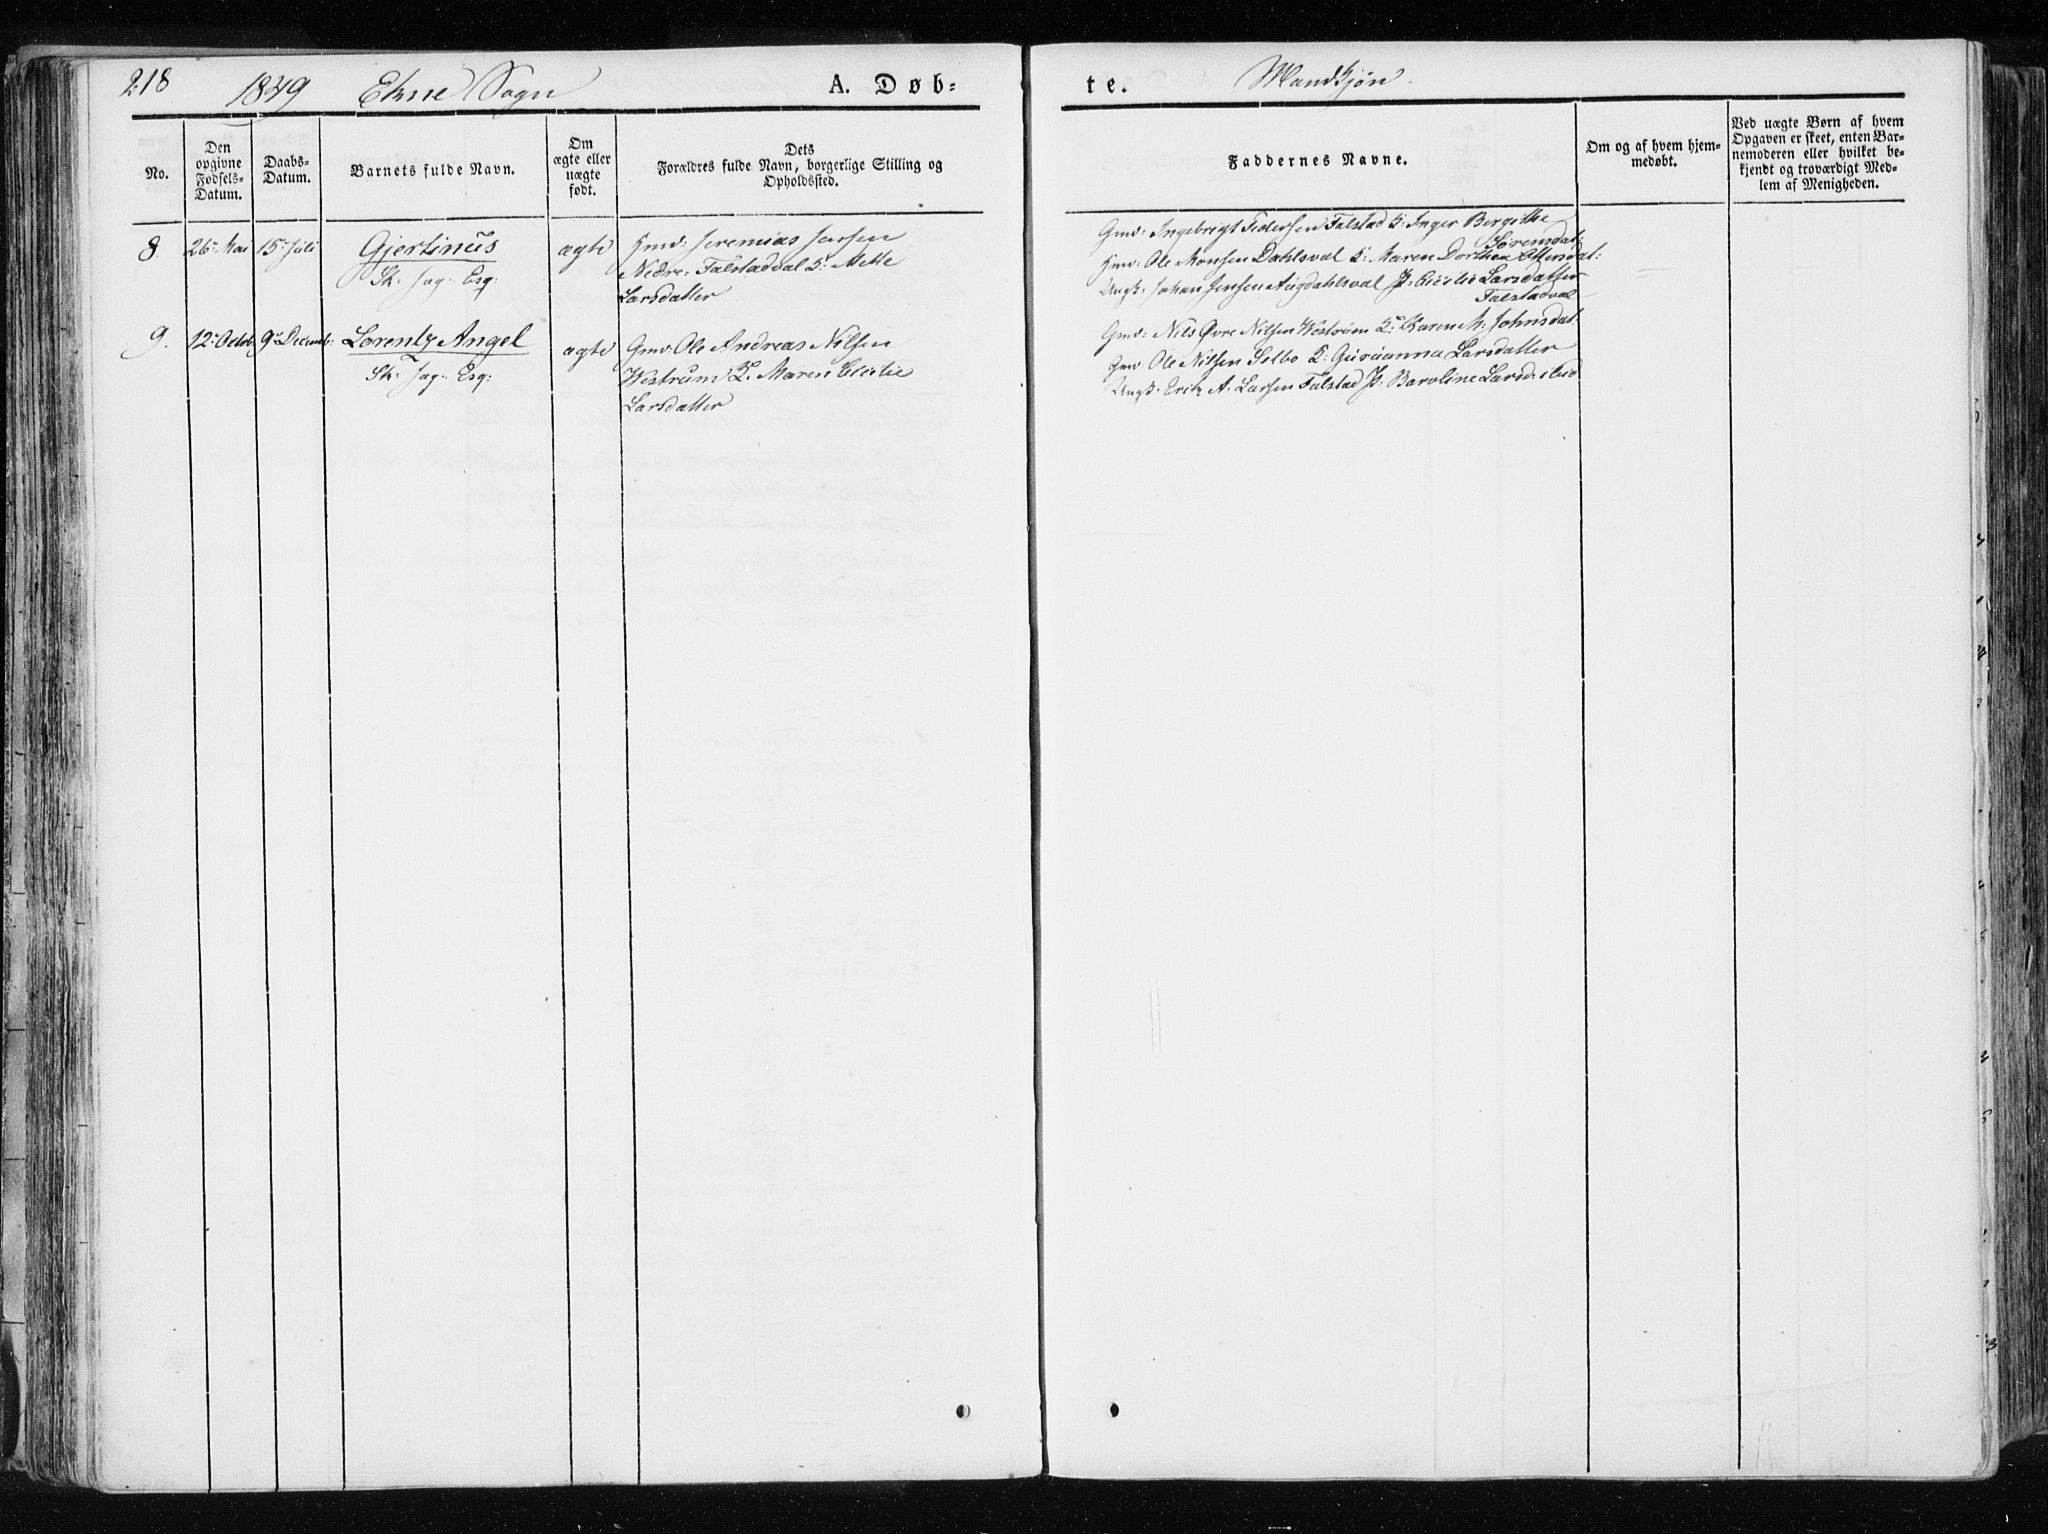 218
1849 Ekne Sogn
A. Døb-
te.
Mandkjøn.
No.
Den opgivne Fødsels-Datum.
Daabs-Datum.
Barnets fulde Navn.
Om ægte eller uægte født.
Dets
Forældres fulde Navn, borgerlige Stilling og
Opholdssted.
Faddernes Navne.
Om og af hvem hjem-
medøbt.
Ved uægte Børn af hvem
Opgaven er skeet, enten Bar-
nemoderen eller hvilket be-
kjendt og troværdigt Med-
lem af Menigheden.
8. 26de Mai 15de Juli Gjertinus ægte
St: Jag: Esq:
Hmd: Jeremias Jensen
Nedre: Falstadval K: Mette
Larsdatter
Gmd: Ingebrigt Pedersen Falstad K: Inger Bergitthe
Sørensdat:
Hmd: Ole Monsen Dahlsval K: Maren Dorthea Ottersdat:
Ungk: Johan Jensen Augdahlsval P: Cicilie Larsdatter
Falstadval
9. 12te Octob: 9de Decemb: Lorentz Angel ægte
St: Jag: Esq:
Gmd: Ole Andreas Nilsen
Westrum K: Maren Cicilie
Larsdatter
Gmd: Nils Øvre Nilsen K: Karen M: Johnsdat:
Gmd Ole Nilsen Selbo K: Gurianna Larsdatter
Ungk: Erik A. Larsen Falstad P: Baroline Larsd: